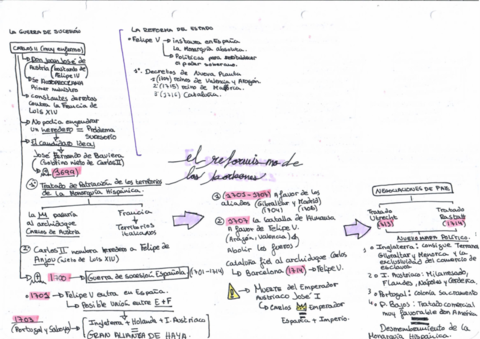 LA GUERRA DE SUCESIÓN
CARLOS II (muy enfermo)
→ Don Juan José de
Austria (bastardo de
Felipe IV
→ Se
Primer ministro
→ constantes derrotas
contra la Francia de
Luis XIV
→ No podía engendrar
un heredero = Problema
sucesorio
→ El candidato ideal
José Fernando de Baviera
(sobrino nieto de Carlos II)
1699
① Tratado de Partición de los territorios
de la Monarquía Hispánica.
La MH pasaría
al archiduque
Carlos de Austria
Francia
→
Territorios
italianos
② Carlos II nombra heredero a Felipe de
Anjou (nieto de Luis XIV)
1700 → Guerra de Sucesión Española (1701-1714)
• 1701 → Felipe V entra en España.
→ Posible Unión entre E + F
1703
(Portugal y Saboya)
Inglaterra + Holanda + I. Austríaco
GRAN ALIANZA DE HAYA
LA REFORMA DEL ESTADO
• Felipe V → instaura en España
la Monarquía absoluta.
→ Políticas para
el poder soberano.
1º. Decretos de Nueva Planta
(1707) reinos de Valencia y Aragón
2º (1715) reino de Mallorca.
3º (1716) Cataluña.
el reformismo de
los borbones
① 1703-1704 a favor de los
aliados (Gibraltar y Madrid)
(1704) (1706)
② 1707 la batalla de Almansa
a favor de Felipe V.
(Aragón, Valencia)
Abolir los fueros
Cataluña fiel al archiduque Carlos
↳ Barcelona (1714) → Felipe V.
Muerte del Emperador
Austríaco José I
↳ Carlos Emperador
España + Imperio.
NEGOCIACIONES DE PAZ
Tratado
Utrecht
1713
Tratado
Rastatt
1714
NUEVO MAPA POLÍTICO.
1º Inglaterra: consigue Terranova
Gibraltar y Menorca + la
exclusividad del comercio de
esclavos
2º I. Austríaco: Milanesado,
Flandes, Nápoles y Cerdeña
3º Portugal: colonia Sacramento
4º P. Bajos: Tratado comercial
muy favorable con América
Desmembramiento de la
Monarquía Hispánica.